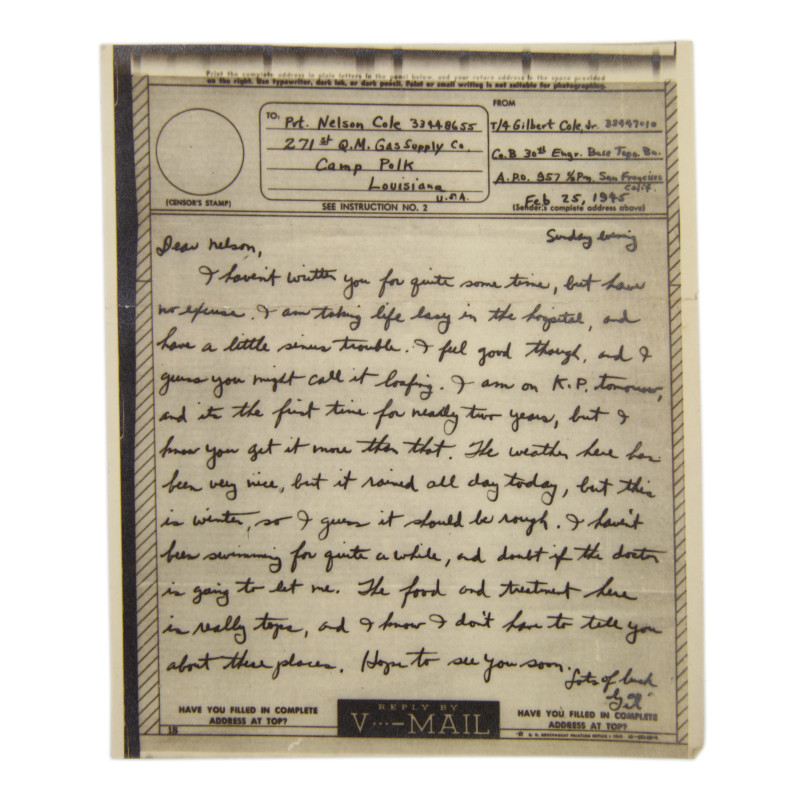 Print the complete address in plain letters in the panel below, and your return address in the space provided
on the right. Use typewriter, dark ink, or dark pencil. Faint or small writing is not suitable for photographing.
FROM
TO:
Pvt. Nelson Cole 33448655
271st Q.M. Gas Supply Co.
Camp Polk
Louisiana
U.S.A.
T/4 Gilbert Cole, Jr. 33447010
Co.B 30th Engr. Base Topo. Bn.
A.P.O. 957 % Pm, San Francisco
Calif.
Feb 25, 1945
(CENSOR'S STAMP)
SEE INSTRUCTION NO. 2
(Sender's complete address above)
Sunday evening
Dear Nelson,
I haven't written you for quite some time, but have
no excuse. I am taking life easy in the hospital, and
have a little sinus trouble. I feel good though, and I
guess you might call it loafing. I am on K.P. tomorrow,
and its the first time for nearly two years, but I
know you get it more then that. The weather here has
been very nice, but it rained all day today, but this
is winter, so I guess it should be rough. I haven't
been swimming for quite a while, and doubt if the doctor
is going to let me. The food and treatment here
is really tops, and I know I don't have to tell you
about these places. Hope to see you soon.
Lots of luck
"Gil"
HAVE YOU FILLED IN COMPLETE
ADDRESS AT TOP?
REPLY BY
V···—MAIL
HAVE YOU FILLED IN COMPLETE
ADDRESS AT TOP?
18
U. S. GOVERNMENT PRINTING OFFICE